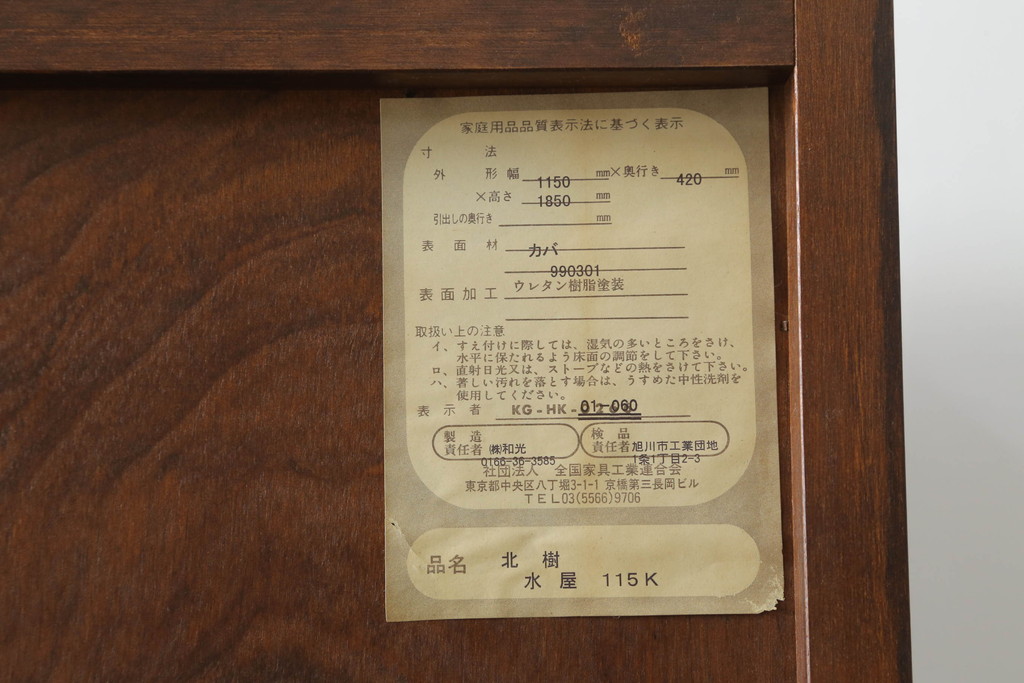 家庭用品品質表示法に基づく表示
寸法
外形 幅 1150 mm×奥行き 420 mm
×高さ 1850 mm
引出しの奥行き mm
表面材 カバ
990301
表面加工 ウレタン樹脂塗装
取扱い上の注意
イ、すえ付けに際しては、湿気の多いところをさけ、
水平に保たれるよう床面の調節をして下さい。
ロ、直射日光又は、ストーブなどの熱をさけて下さい。
ハ、著しい汚れを落とす場合は、うすめた中性洗剤を
使用してください。
表示者 KG-HK- 01-060
製造 検品
責任者 ㈱和光 責任者 旭川市工業団地
0166-36-3585 1条1丁目2-3
社団法人 全国家具工業連合会
東京都中央区八丁堀3-1-1 京橋第三長岡ビル
TEL03(5566)9706
品名 北樹
水屋 115K